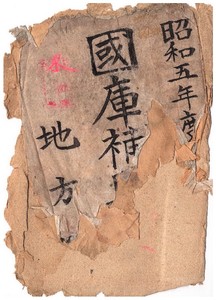 昭和五年度
國庫補
地方